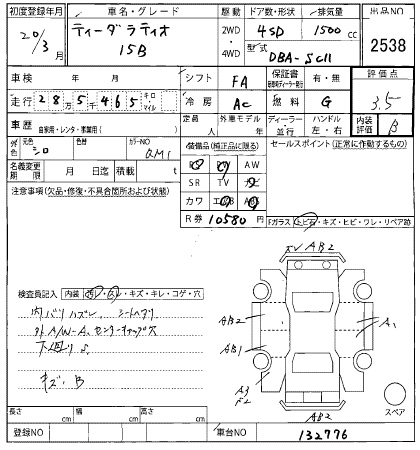 初度登録年月 車名・グレード 駆動 ドア数・形状 排気量 出品NO
20/3月 ティーダラティオ 2WD・4WD 4SD 1500cc 2538
15B 型式 DBA-SC11
車検 年 月 シフト FA 保証書 有・無 評価点
走行 28万5千465 キロ・マイル 冷房 AC 燃料 G 3.5
車歴 自家用・レンタ・事業用( ) 定員 人 外車モデル 年 ディーラー・並行 ハンドル 左・右 内装評価 B
外色 元色 シロ 色替 カラーNO QM1 装備品(純正品に限る) セールスポイント(正常に作動するもの)
名義変更期限 月 日迄 積載 t AW
SR TV ナビ
カワ エアB ABS
R券 10580 円 Fガラス トビ石・キズ・ヒビ・ワレ・リペア跡
注意事項(欠品・修復・不具合箇所および状態)
AB2
検査員記入 内装 汚レ・スレ・キズ・キレ・コゲ・穴
内バリハズレ シートヘタリ
外A/W-A、センターキャップ穴
下回りサ
キズ、B
AB2
AB1
A1
A3
AB2
スペア
長さ cm 幅 cm 高さ cm
登録NO 車台NO 132776